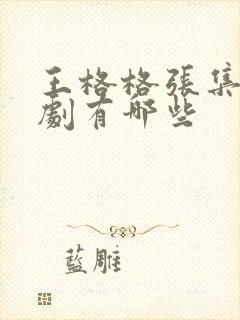 王格格張集
劇有哪些
藍雕